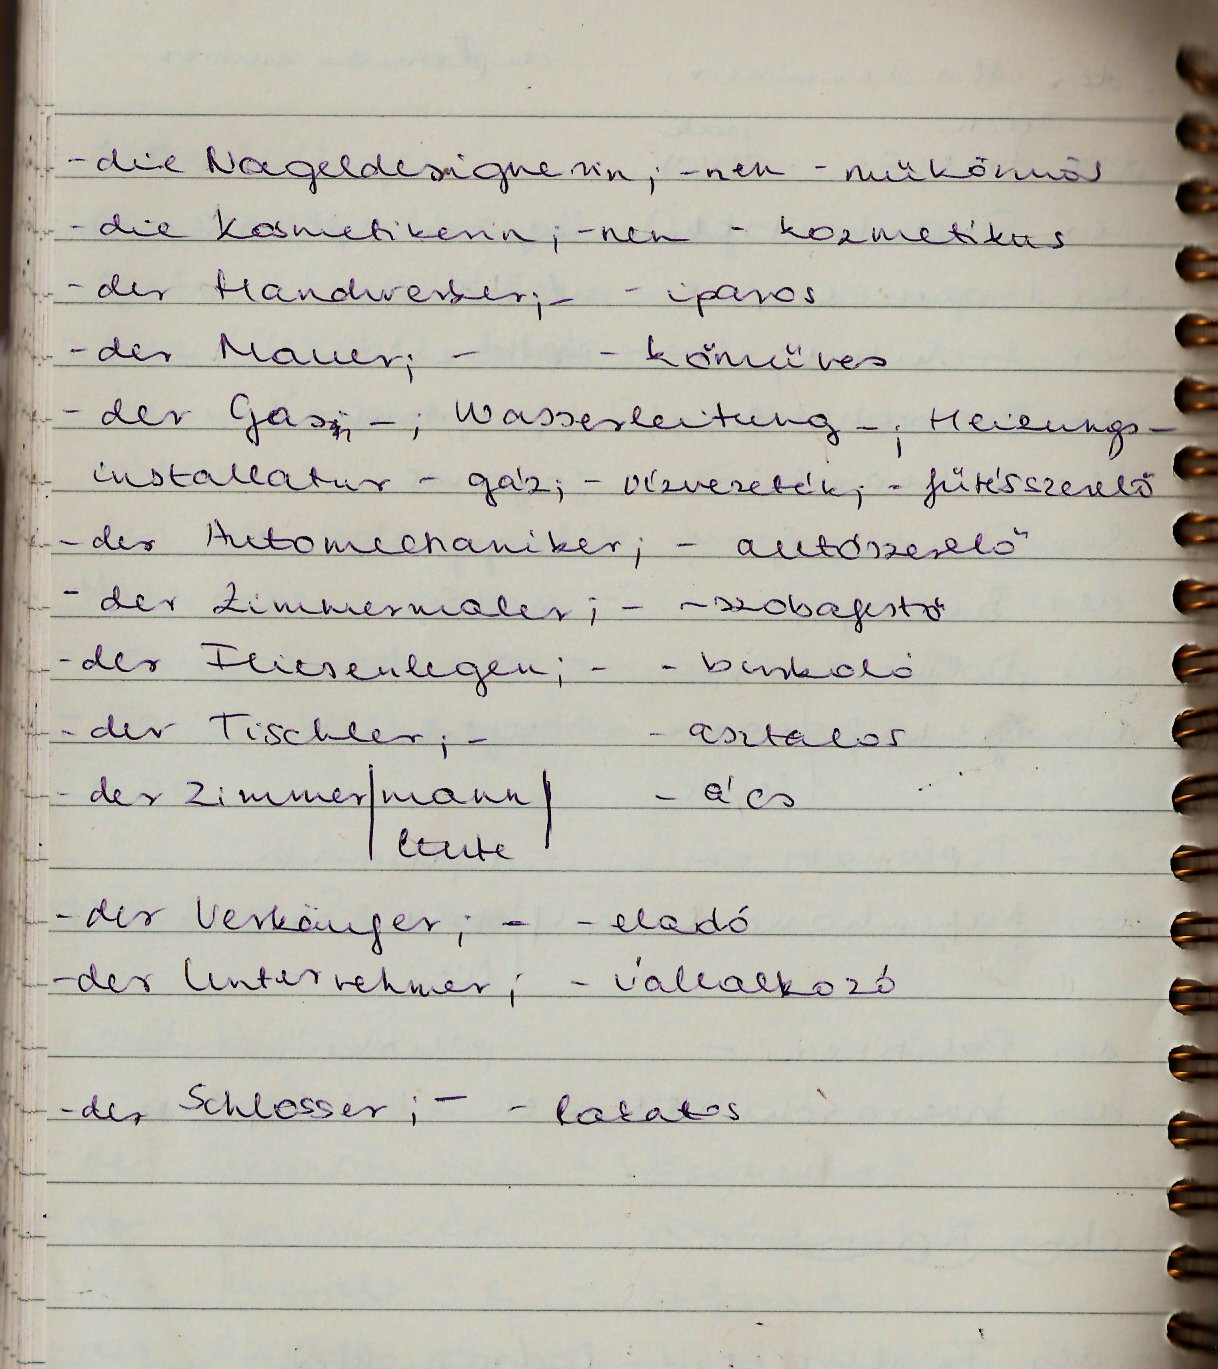 - die Nageldesignerin; -nen - műkörmös
- die Kosmetikerin; -nen - kozmetikus
- der Handwerker; - - iparos
- der Mauer; - - kőműves
- der Gas; - ; Wasserleitung - ; Heizungs-
installatur - gáz; - vízvezeték; - fűtésszerelő
- der Automechaniker; - autószerelő
- der Zimmermaler; - - szobafestő
- der Fliesenlegen; - - burkoló
- der Tischler; - - asztalos
- der Zimmer|mann| - ács
leute
- der Verkäufer; - - eladó
- der Unternehmer; - vállalkozó
- der Schlosser; - - lakatos